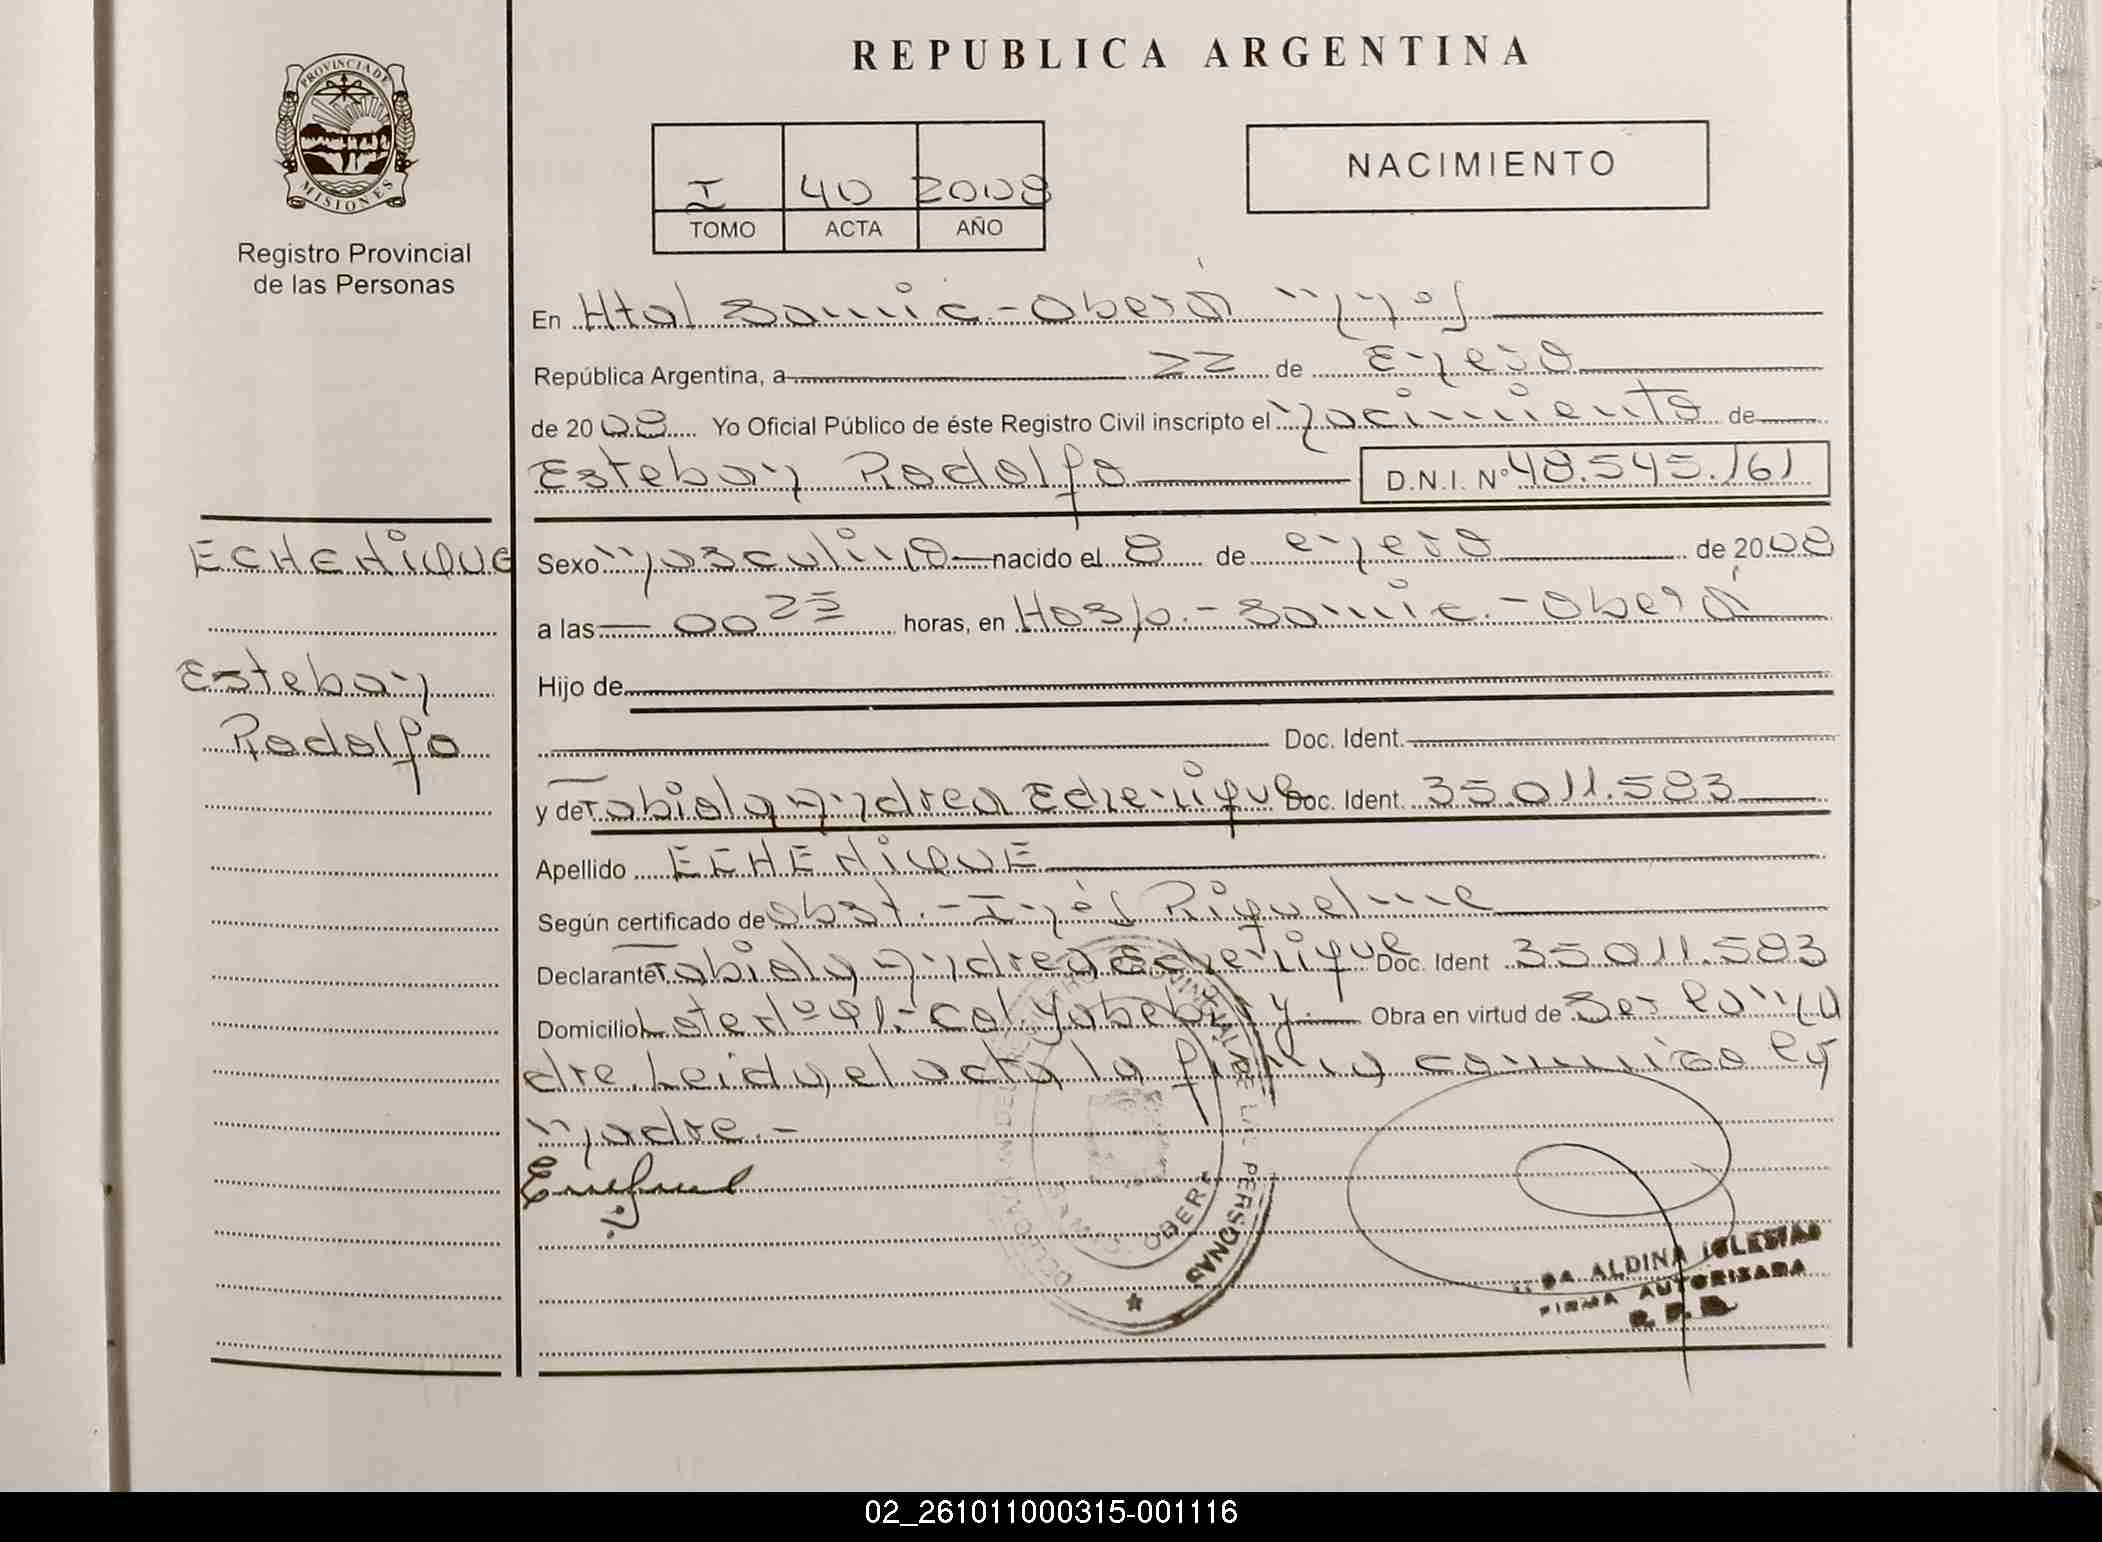 REPUBLICA ARGENTINA
PROVINCIA DE
MISIONES
Registro Provincial
de las Personas
I 40 2008
TOMO ACTA AÑO
NACIMIENTO
En Htal Samic - Oberá Mnes
República Argentina, a 22 de Enero
de 2008 Yo Oficial Público de éste Registro Civil inscripto el Nacimiento de
Esteban Rodolfo D.N.I. Nº 48.545.161
ECHENIQUE
Esteban
Rodolfo
Sexo Masculino nacido el 8 de enero de 2008
a las 00 25 horas, en Hosp. - Samic. - Oberá
Hijo de
Doc. Ident.
y de Fabiola Andrea Echenique Doc. Ident. 35.011.583
Apellido ECHENIQUE
Según certificado de Obst. - Inés Riquelme
Declarante Fabiola Andrea Echenique Doc. Ident 35011.583
Domicilio Lote Nº 41.- Col. Yabebiry. Obra en virtud de Ser la Ma
dre. Leida el acta la firma conmigo la
Madre. -
DE LAS PERSONAS
OBERA
ALDINA IGLESIAS
FIRMA AUTORIZADA
R. P. P.
02_261011000315-001116